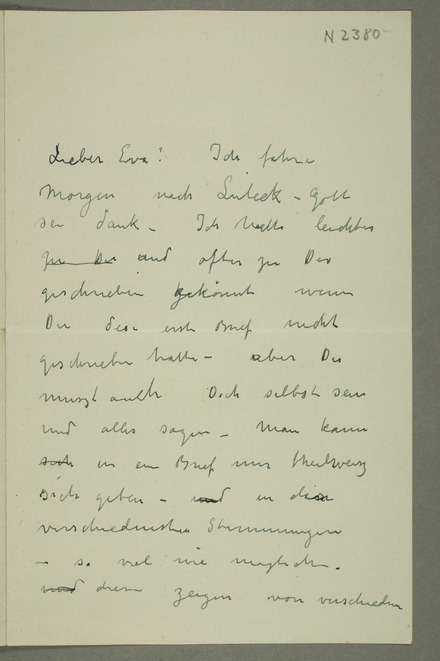 N 2380
Lieber Eva! Ich fahre
Morgen nach Lübeck - Gott
sei dank - Ich hatte leichter
zu Dir und öfter zu Dir
geschrieben gekönnt wenn
Du dese erste Brief nicht
geschrieben hatte - aber Du
muszt auch Dich selbst sein
und alles sagen - Man kann
sich in ein Brief nur theilweisz
sich geben - und in die
verschiednisten Stimmungen
- so viel wie moglich -
und diese zeigen von verschieden